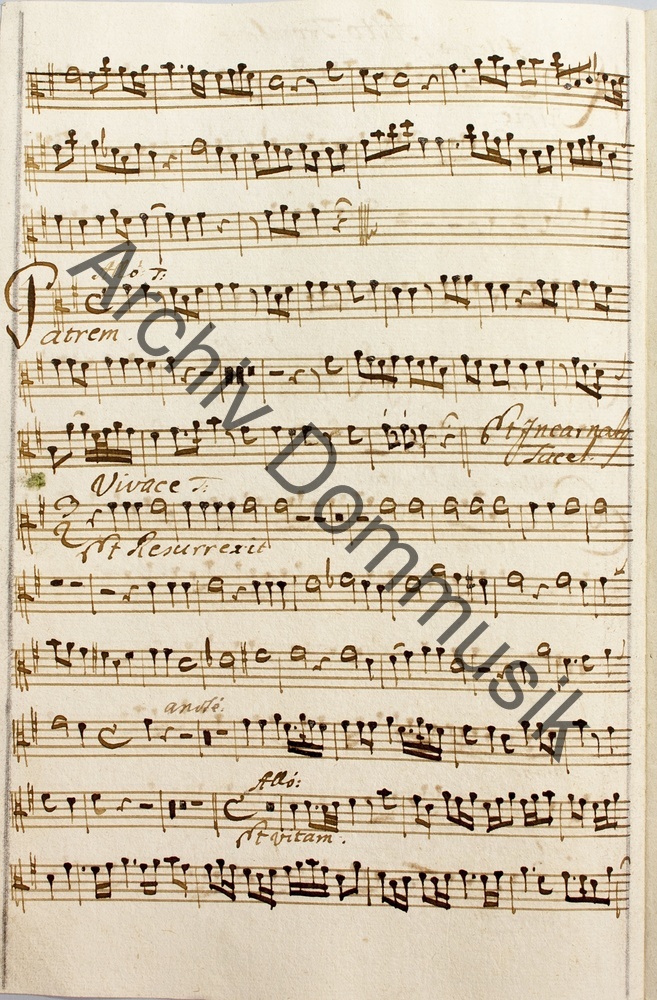 All⁰ T:
Patrem.
Et Incarnatus
tacet.
Vivace T:
Et Resurrexit
andte:
Allo:
Et vitam.
Archiv Dommusik